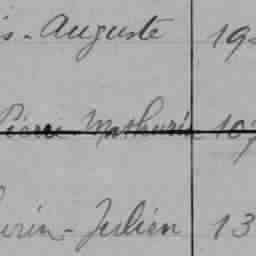 is - Auguste 19
Pierre Mathurin 107
urin - Julien 13